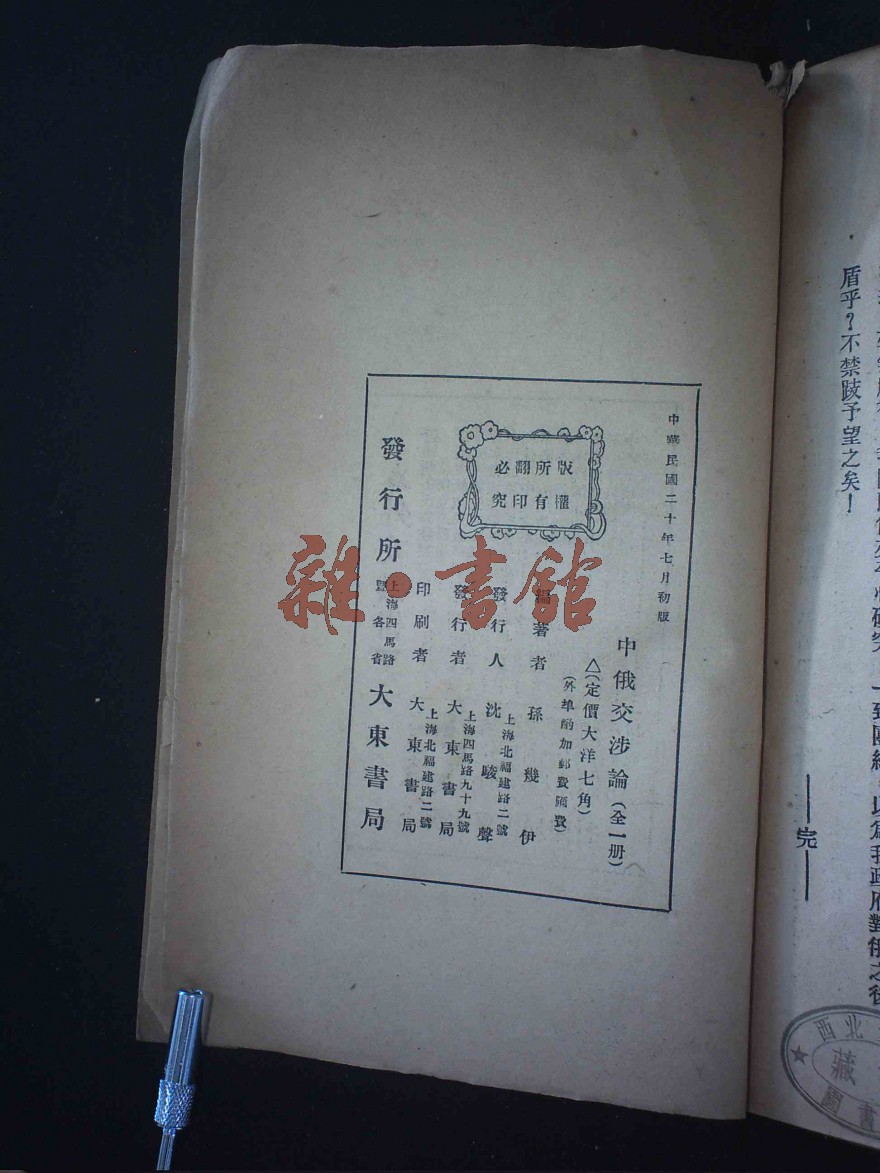 盾乎？不禁跂予望之矣！
——完——
中華民國二十年七月初版
版權
所有
翻印
必究
中俄交涉論（全一册）
△（定價大洋七角）
（外埠酌加郵費匯費）
編著者 孫幾伊
發行人 上海北福建路二號 沈駿聲
發行者 上海四馬路九十九號 大東書局
印刷者 上海北福建路二號 大東書局
發行所 上海四馬路暨各省 大東書局
雜·書館
西北
藏
圖書